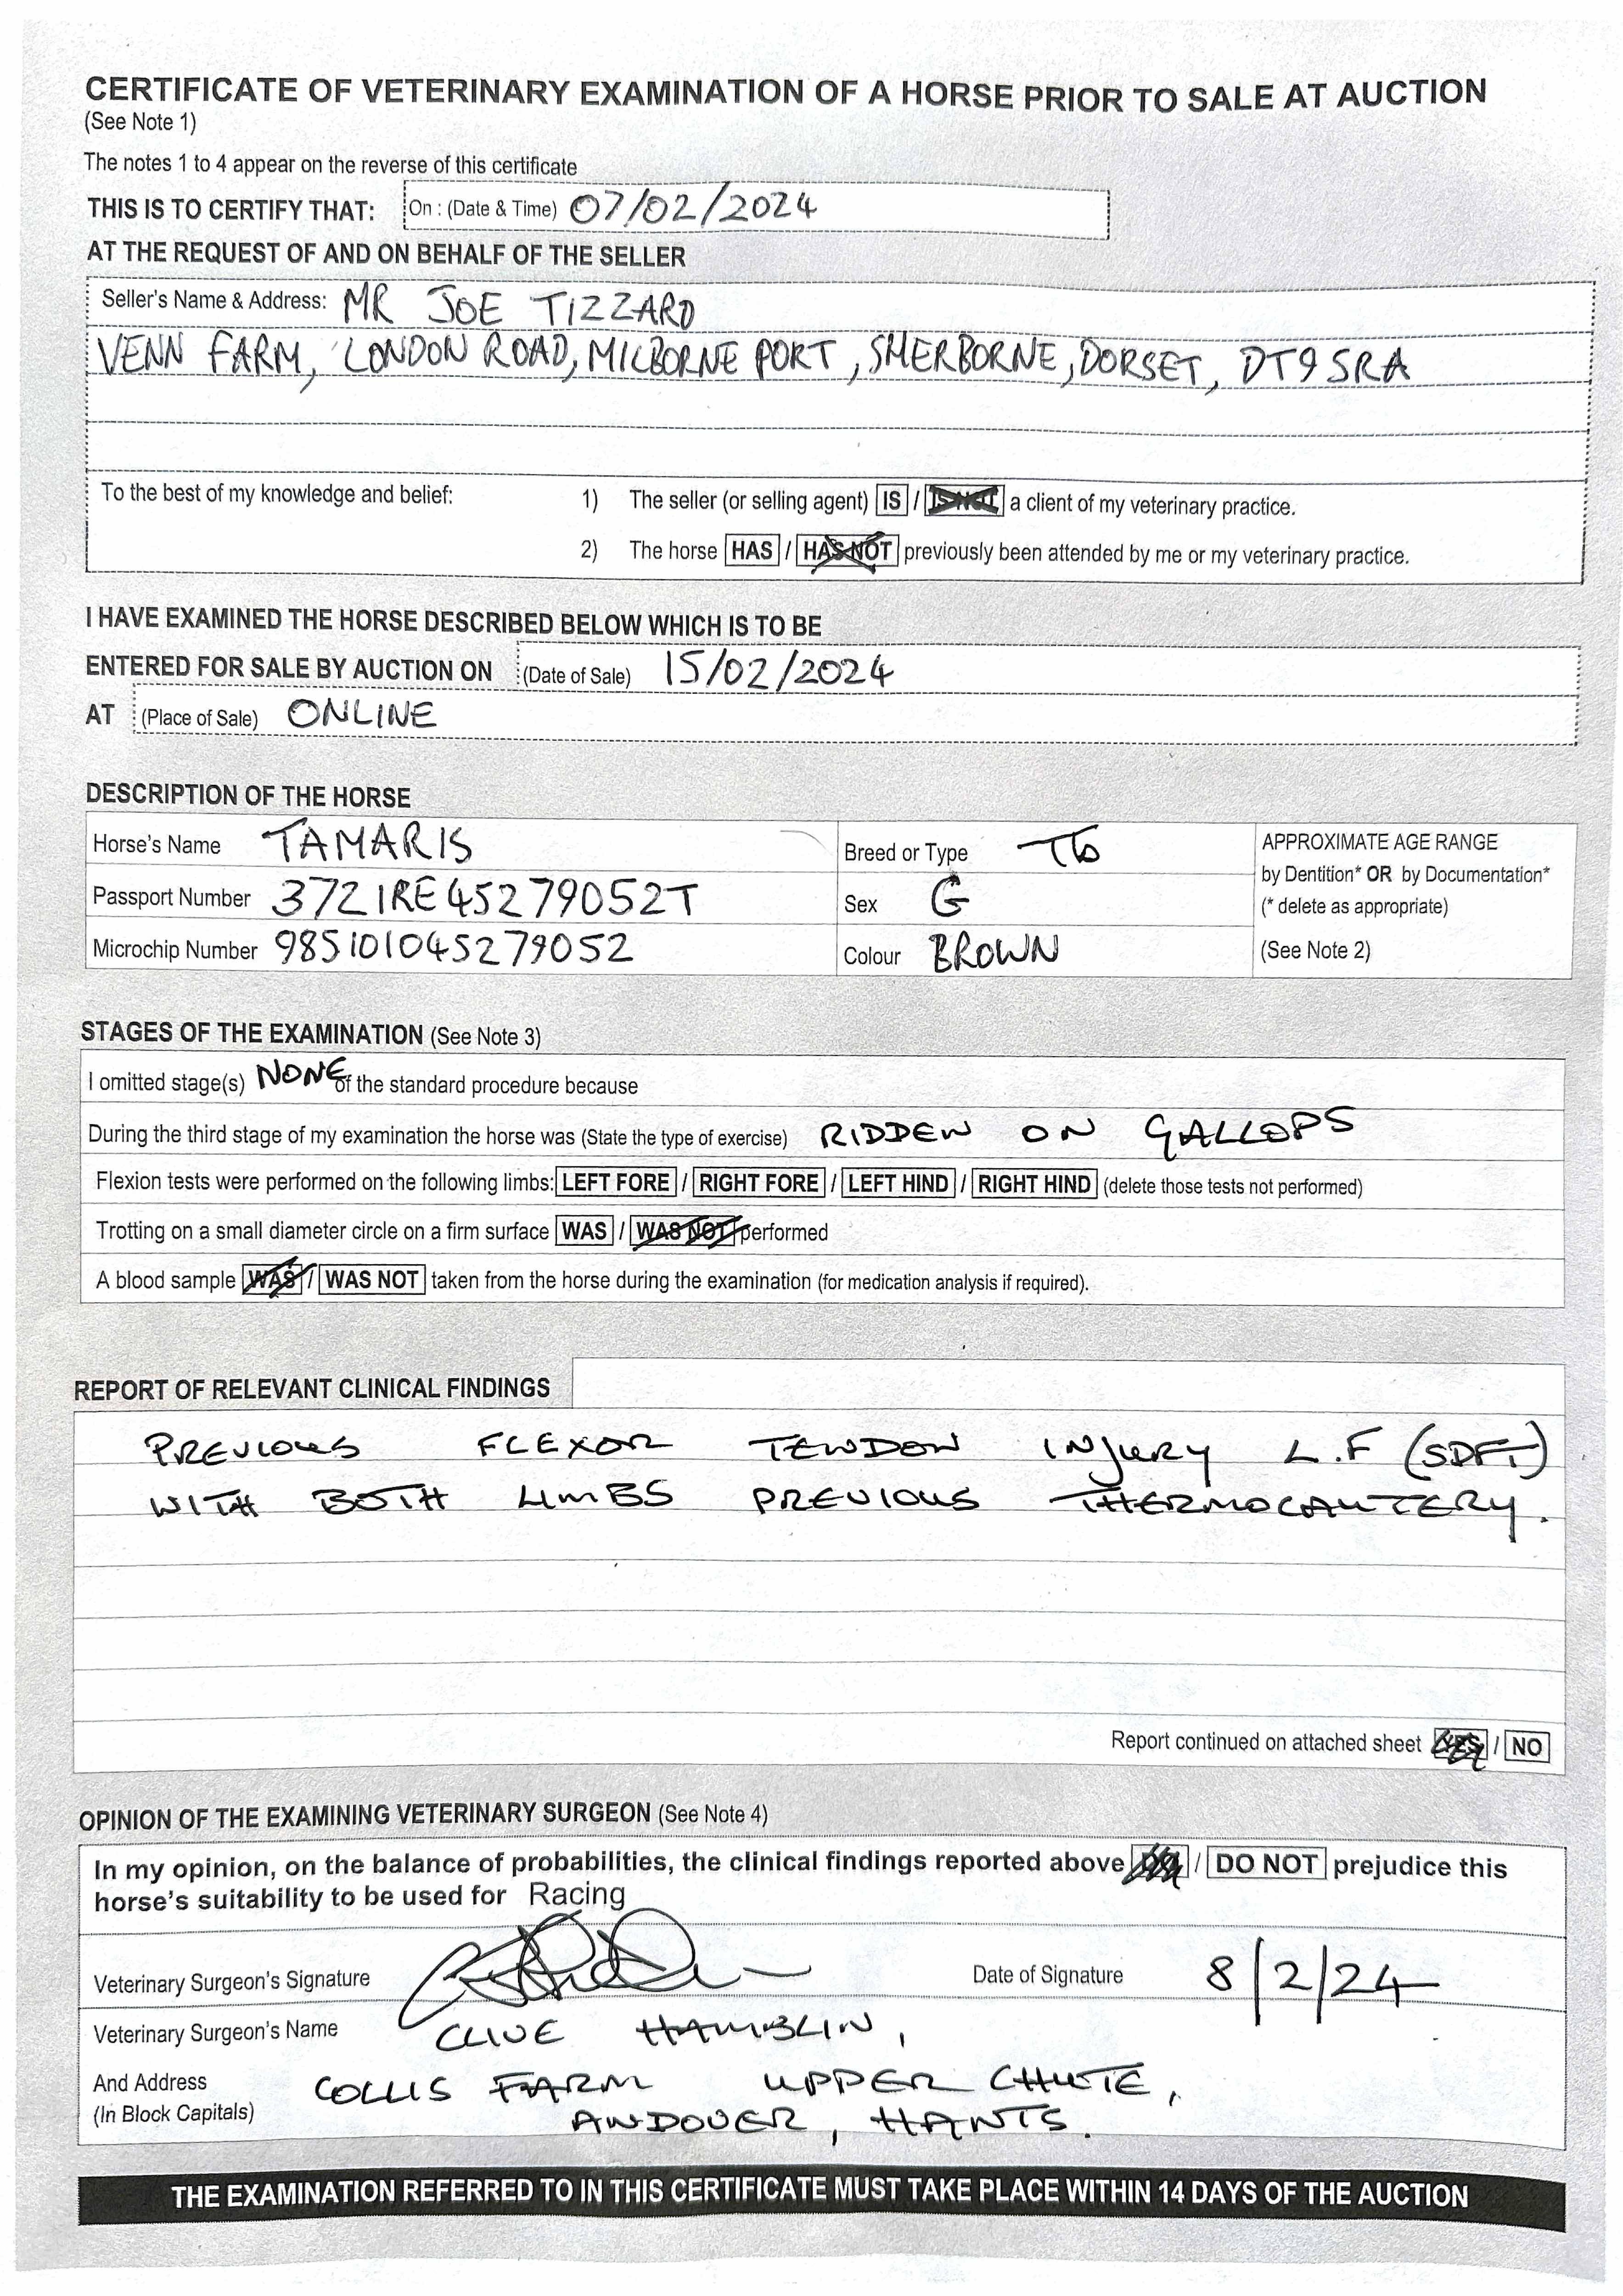 CERTIFICATE OF VETERINARY EXAMINATION OF A HORSE PRIOR TO SALE AT AUCTION
(See Note 1)
The notes 1 to 4 appear on the reverse of this certificate
THIS IS TO CERTIFY THAT: On : (Date & Time) 07/02/2024
AT THE REQUEST OF AND ON BEHALF OF THE SELLER
Seller's Name & Address: MR JOE TIZZARD
VENN FARM, LONDON ROAD, MILBORNE PORT, SHERBORNE, DORSET, DT9 5RA
To the best of my knowledge and belief: 1) The seller (or selling agent) IS / IS NOT a client of my veterinary practice.
2) The horse HAS / HAS NOT previously been attended by me or my veterinary practice.
I HAVE EXAMINED THE HORSE DESCRIBED BELOW WHICH IS TO BE
ENTERED FOR SALE BY AUCTION ON (Date of Sale) 15/02/2024
AT (Place of Sale) ONLINE
DESCRIPTION OF THE HORSE
Horse's Name TAMARIS Breed or Type Tb APPROXIMATE AGE RANGE
by Dentition* OR by Documentation*
Passport Number 372IRE45279052T Sex G (* delete as appropriate)
Microchip Number 985101045279052 Colour BROWN (See Note 2)
STAGES OF THE EXAMINATION (See Note 3)
I omitted stage(s) NONE of the standard procedure because
During the third stage of my examination the horse was (State the type of exercise) RIDDEN ON GALLOPS
Flexion tests were performed on the following limbs: LEFT FORE / RIGHT FORE / LEFT HIND / RIGHT HIND (delete those tests not performed)
Trotting on a small diameter circle on a firm surface WAS / WAS NOT performed
A blood sample WAS / WAS NOT taken from the horse during the examination (for medication analysis if required).
REPORT OF RELEVANT CLINICAL FINDINGS
PREVIOUS FLEXOR TENDON INJURY L.F (SDFT)
WITH BOTH LIMBS PREVIOUS THERMOCAUTERY.
Report continued on attached sheet YES / NO
OPINION OF THE EXAMINING VETERINARY SURGEON (See Note 4)
In my opinion, on the balance of probabilities, the clinical findings reported above / DO NOT prejudice this
horse's suitability to be used for Racing
Veterinary Surgeon's Signature Date of Signature 8/2/24
Veterinary Surgeon's Name CLIVE HAMBLIN,
And Address COLLIS FARM UPPER CHUTE,
(In Block Capitals) ANDOVER, HANTS.
THE EXAMINATION REFERRED TO IN THIS CERTIFICATE MUST TAKE PLACE WITHIN 14 DAYS OF THE AUCTION